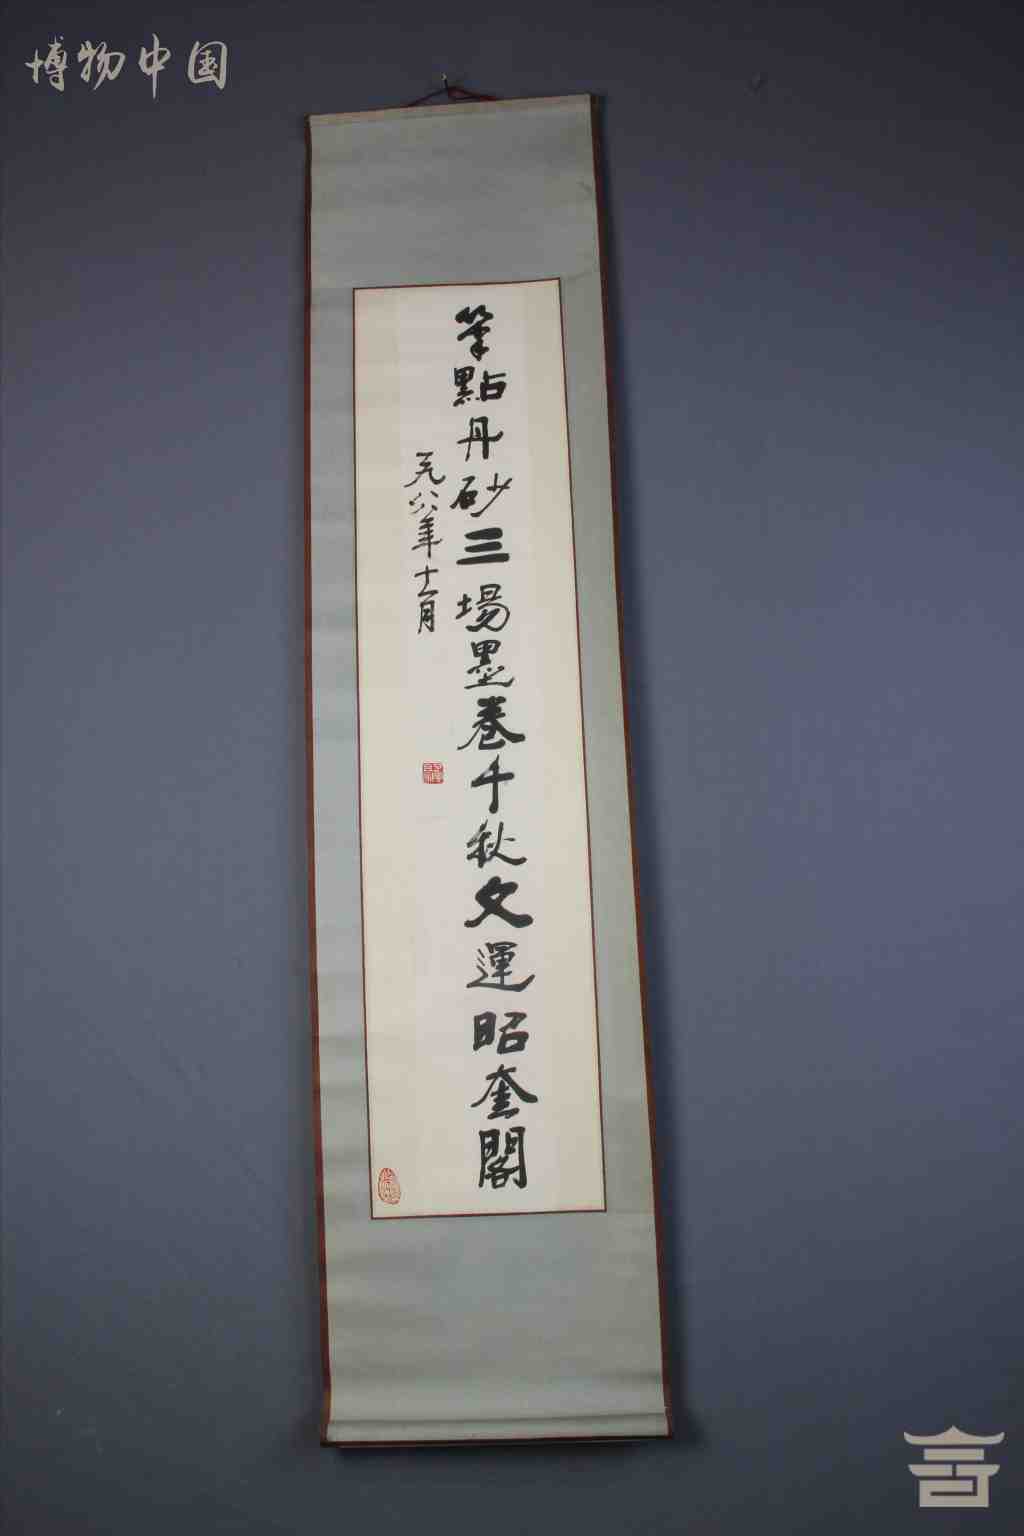 博物中国
筆點丹砂三場墨卷千秋文運昭奎閣
一九八八年十一月